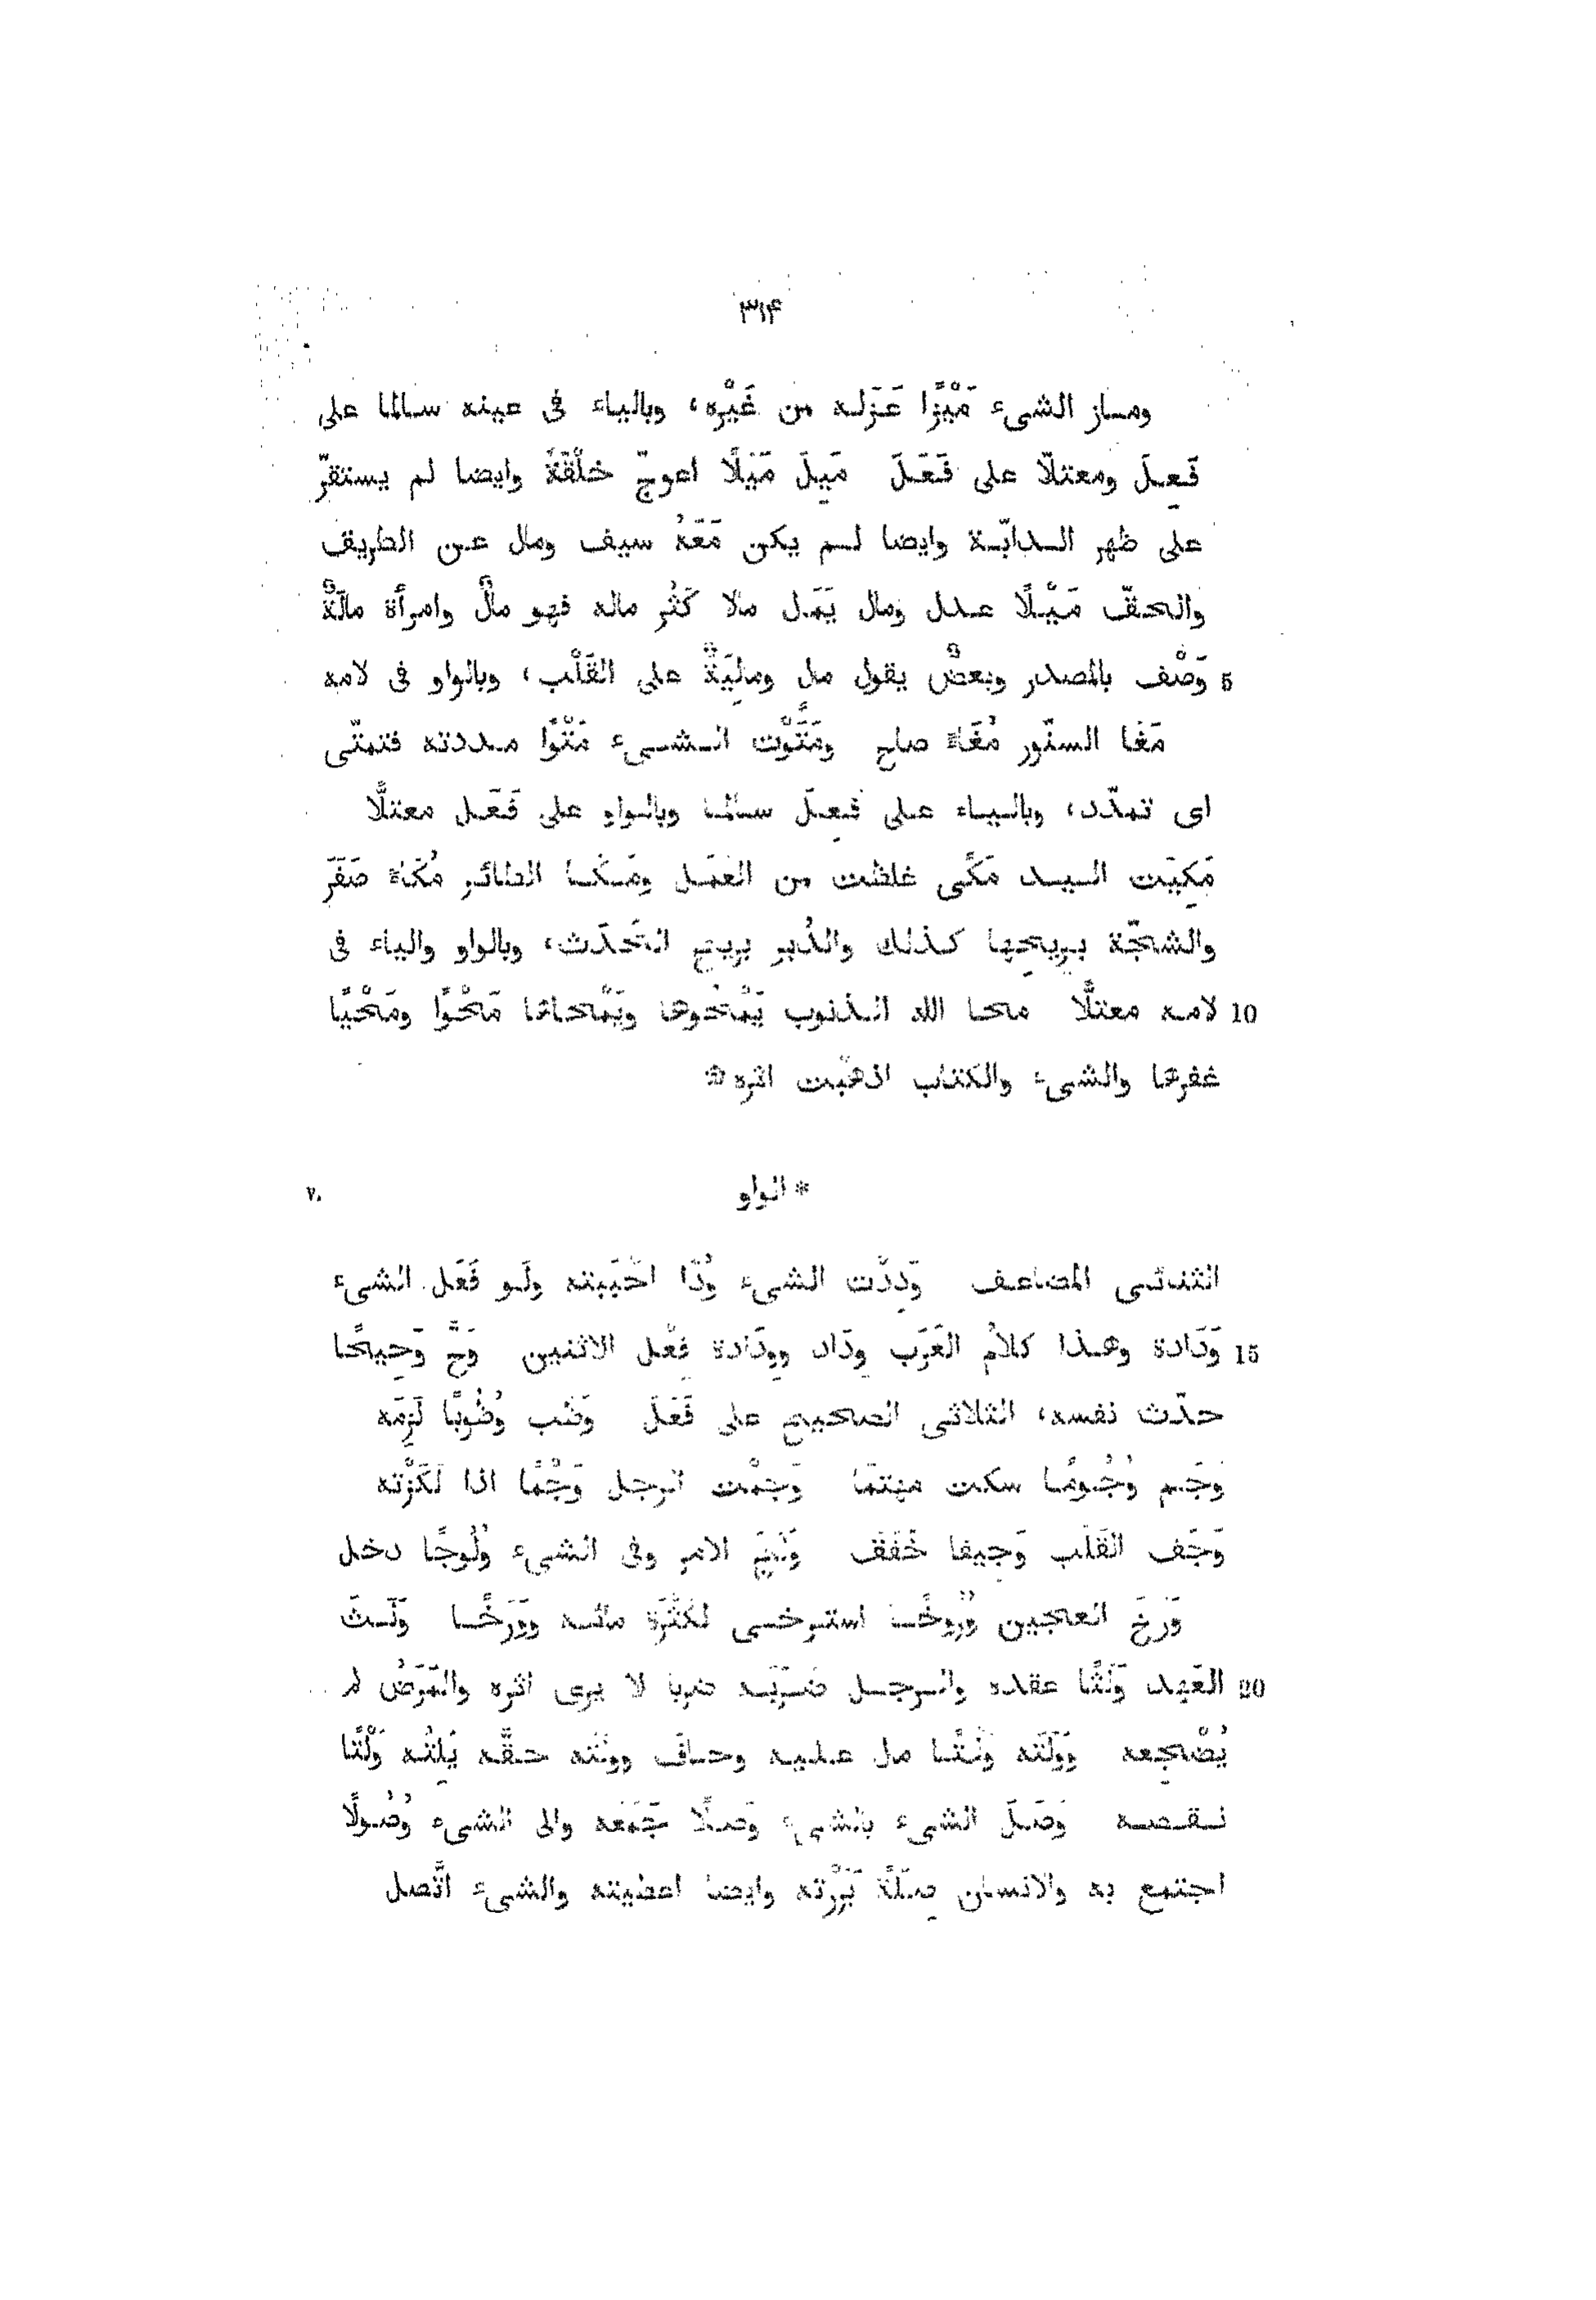 ٣١۴
وماز الشىء مَيْزًا عَزَله من غَيْره، وبالياء فى عينه سالما على
فَعِلَ ومعتلّا على فَعَلَ مَيِلَ مَيَلًا اعوجّ خلْقَةً وايضا لم يستقرّ
على ظهر الدابّة وايضا لم يكن مَعَهُ سيف ومال عن الطريق
والحقّ مَيْلًا عدل ومال يَمَل مالا كَثُر ماله فهو مالٌ وامرأة مالَةٌ
5 وَصْف بالمصدر وبعضٌ يقول مل ومالِيَةٌ على القَلْب، وبالواو فى لامه
مَغَا السنّور مُغَاءً صاح ومَتَوْت الشىء مَتْوًا مددته فتمتّى
اى تمدّد، وبالياء على فَعِلَ سالما وبالواو على فَعَل معتلًّا
مَكِيَت اليد مَكًى غلظت من العَمَل ومَكَا الطائر مُكَاءً صَفَرَ
والشجّة بريحها كذلك والدُبر بريح الحَدَث، وبالواو والياء فى
10 لامه معتلًّا محا الله الذنوب يَمْحُوها ويَمْحاها مَحْوًا ومَحْيًا
غفرها والشىء والكتاب اذهَبت اثره ۞
* الواو
v.
الثنائى المضاعف وَدِدْت الشىء وُدًّا احْبَبته ولَو فَعَل الشىء
15 وَدَادة وهذا كلامُ العَرَب وِدَاد ووِدَادة فِعْل الاثنين وَحَّ وَحِيحًا
حدّث نفسه، الثلاثى الصحيح على فَعَلَ وَظَب وُظُوبًا لَزِمَه
وَجَم وُجُومًا سكت مهتمّا وَجَمْت الرجل وَجْمًا اذا لَكَزْته
وَجَف القَلْب وَجِيفا خَفَقَ وَلَجَ الامر وفى الشىء وُلُوجًا دخل
وَرَخَ العجين وُرُوخًا استرخى لكَثْرَة مائه ووَرَخًا وَلَثَ
20 العَهد وَلْثًا عقده والرجل ضَرَبَه ضربا لا يرى اثره والمَرَضُ لم
يُضْجِعه ووَلَته وَلْتًا مل عليه وحاف وولَته حقَّه يَلِتُه وَلْتًا
نقصه وَصَلَ الشىء بالشىء وَصلًا جَمَعَه والى الشىء وُصُولًا
اجتمع به والانسان صِلَةً بَرَرْته وايضا اعطيته والشىء اتّصل